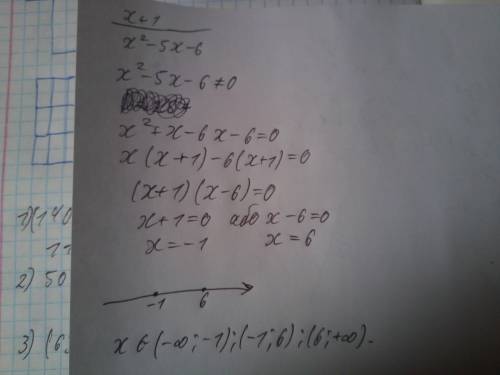 x+1
x²-5x-6
x²-5x-6≠0
x²+x-6x-6=0
x(x+1)-6(x+1)=0
(x+1)(x-6)=0
x+1=0 або x-6=0
x=-1 x=6
-1 6
x ∈ (-∞;-1);(-1;6);(6;+∞).
1)(140
11
2) 50
3) (6